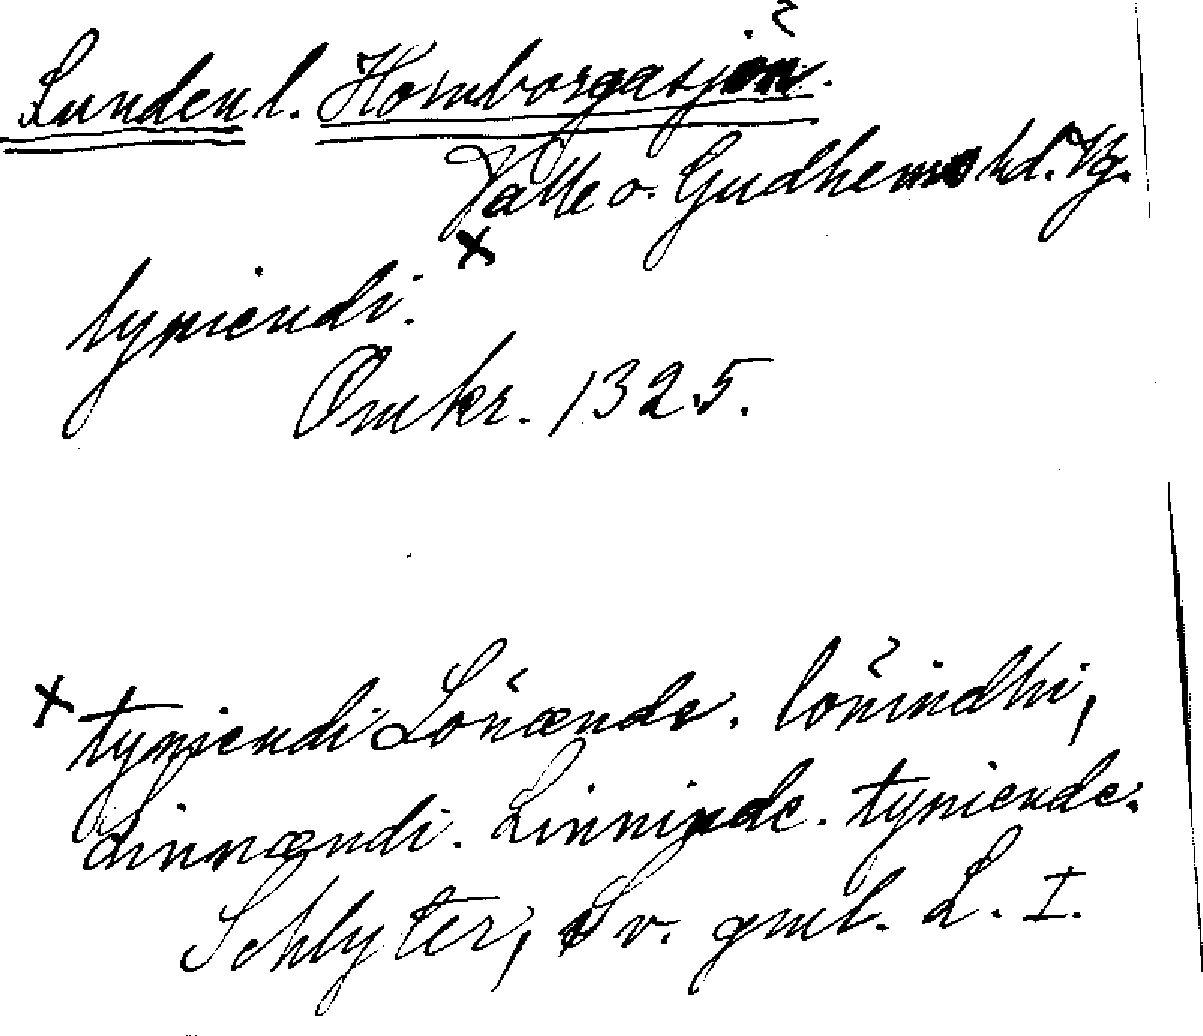 Sunden l. Hornborgasjön.
Valle o. Gudhems hd. Vg.
tyniendi. x
Omkr. 1325.
x tyniendi Loñænde. loñindhi,
Linnændi. Linninde. tyniende.
Schlyter, Sv. gml. L. I.